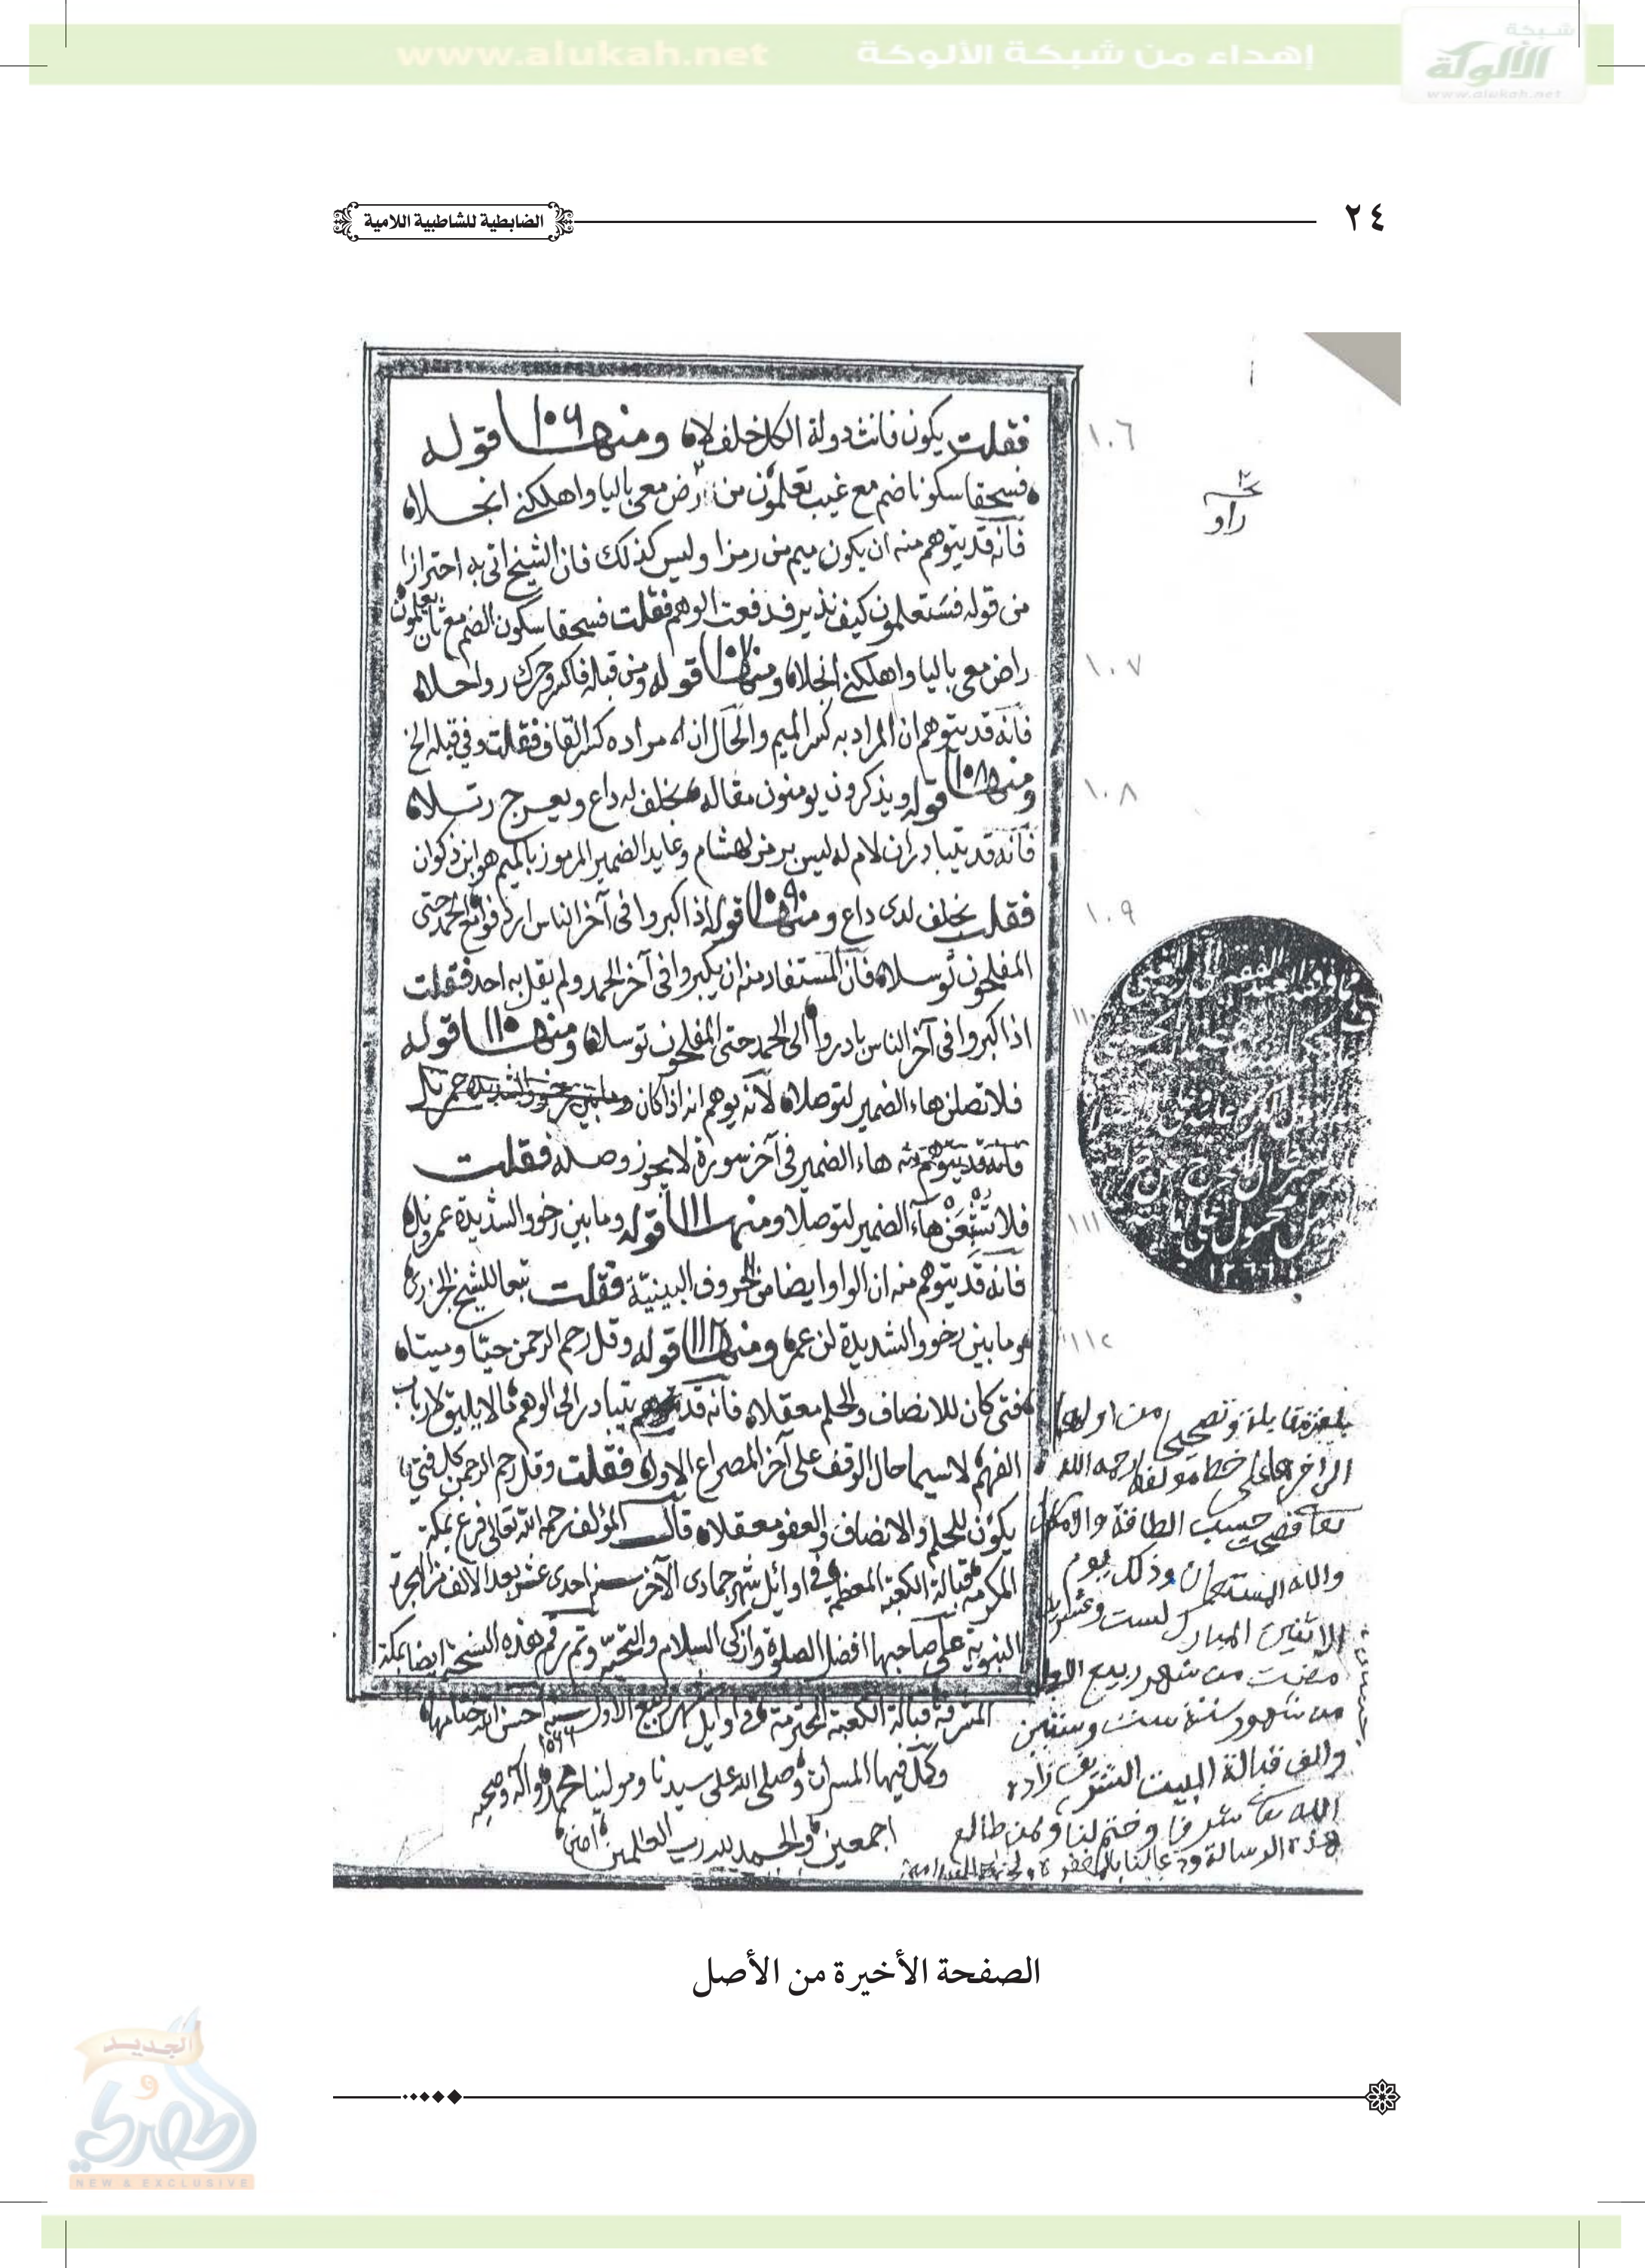 إهداء من شبكة الألوكة www.alukah.net
شبكة
الألوكة
www.alukah.net
٢٤
الضابطية للشاطبية اللامية
فقلت يكون فانث دولة الكل خلف لا ومنها ١٠٦ قوله
فسحقا سكونا ضم مع غيب تعلمون من رض معي باليا واهلكني انجلا
فانه قد يتوهم منه ان يكون ميم من رمزا وليس كذلك فان الشيخ اتى به احترازا
من قوله فستعلمون كيف نذير فدفعت الوهم فقلت فسحقا سكون الضم مع ثان يعلمون
راض معي باليا واهلكني انجلا ومنها ١٠٧ قوله ومن قبله فاكسر وحرك روا حلا
فانه قد يتوهم ان المراد به كسر الميم والحال ان مراده كسر القاف فقلت وفي قبله الخ
ومنها ١٠٨ قوله ويذكرون يومنون مقاله بخلف له داع ويعرج رتلا
فانه قد يتبادر ان لام له ليس برمز لهشام وعايد الضمير المرموز بالميم هو ابن ذكوان
فقلت بخلف لدى داع ومنها ١٠٩ قوله اذا كبروا في آخر الناس اردفوا مع الحمد حتى
المفلحون توسلا فان المستفاد منه ان يكبروا في آخر الحمد ولم يقل به احد فقلت
اذا كبروا في آخر الناس بادروا الى الحمد حتى المفلحون توسلا ومنها ١١٠ قوله
فلا تصلن هاء الضمير لتوصلا لانه يوهم انه اذا كان
فانه قد يتوهم منه هاء الضمير في آخر سورة لا يجوز وصله فقلت
فلا تشبعن هاء الضمير لتوصلا ومنها ١١١ قوله وما بين رخو والشديدة عمر نل
فانه قد يتوهم منه ان الواو ايضا من الحروف البينية فقلت تبعا للشيخ الجزري
وما بين رخو والشديدة لن عمر ومنها ١١٢ قوله وقل رحم الرحمن حيا وميتا
فتى كان للانصاف والحلم معقلا فانه قد يتبادر الى الوهم ما لا يليق لارباب
الفهم لا سيما حال الوقف على آخر المصراع الاول فقلت وقل رحم الرحمن كل فتى
يكون للحلم والانصاف والعفو معقلا قال المؤلف رحمه الله تعالى فرغ بمكة
المكرمة قبالة الكعبة المعظمة في اوائل شهر جمادى الآخر سنة احدى عشر بعد الالف من الهجرة
النبوية على صاحبها افضل الصلوة وازكى السلام والتحية وتم رقم هذه النسخة ايضا بمكة
المشرفة قبالة الكعبة المحترمة في اوايل شهر ربيع الاول سنة ١٠٦٦ احسن الله ختامها
وكمل فيها المسرات وصلى الله على سيدنا ومولينا محمد وآله وصحبه
اجمعين والحمد لله رب العالمين امين
١٠٦
راو
١٠٧
١٠٨
١٠٩
١١٠
١١١
١١٢
١٢٦٦
بلغ مقابلة وتصحيحا من اولها
الى اخرها على خط مولفها رحمه الله
تعالى حسب الطاقة والامكان
والله المستعان وذلك يوم
الاثنين المبارك لست وعشرين
مضت من شهر ربيع الاول
من شهور سنة ست وستين
والف قبالة البيت الشريف زاده
الله تعالى شرفا وختم لنا ولمن طالع
هذه الرسالة ودعا لنا بالمغفرة
الصفحة الأخيرة من الأصل
الجديد
و
الحصري
NEW & EXCLUSIVE